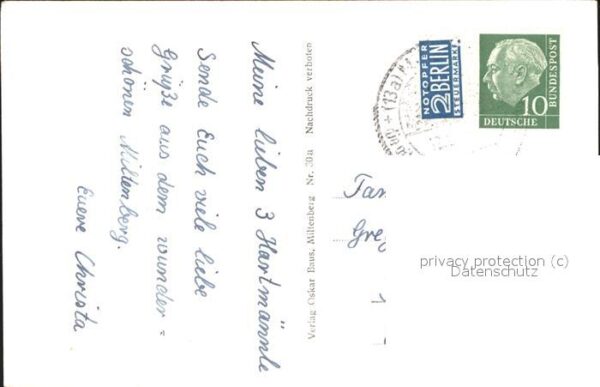 Meine lieben 3 Hartmännle
Sende Euch viele liebe
Grüße aus dem wunder=
schönen Miltenberg.
Euere Christa
Verlag Oskar Baus, Miltenberg Nr. 30a Nachdruck verboten
(13a)
NOTOPFER
2 BERLIN
STEUERMARKE
10
DEUTSCHE
BUNDESPOST
privacy protection (c)
Datenschutz